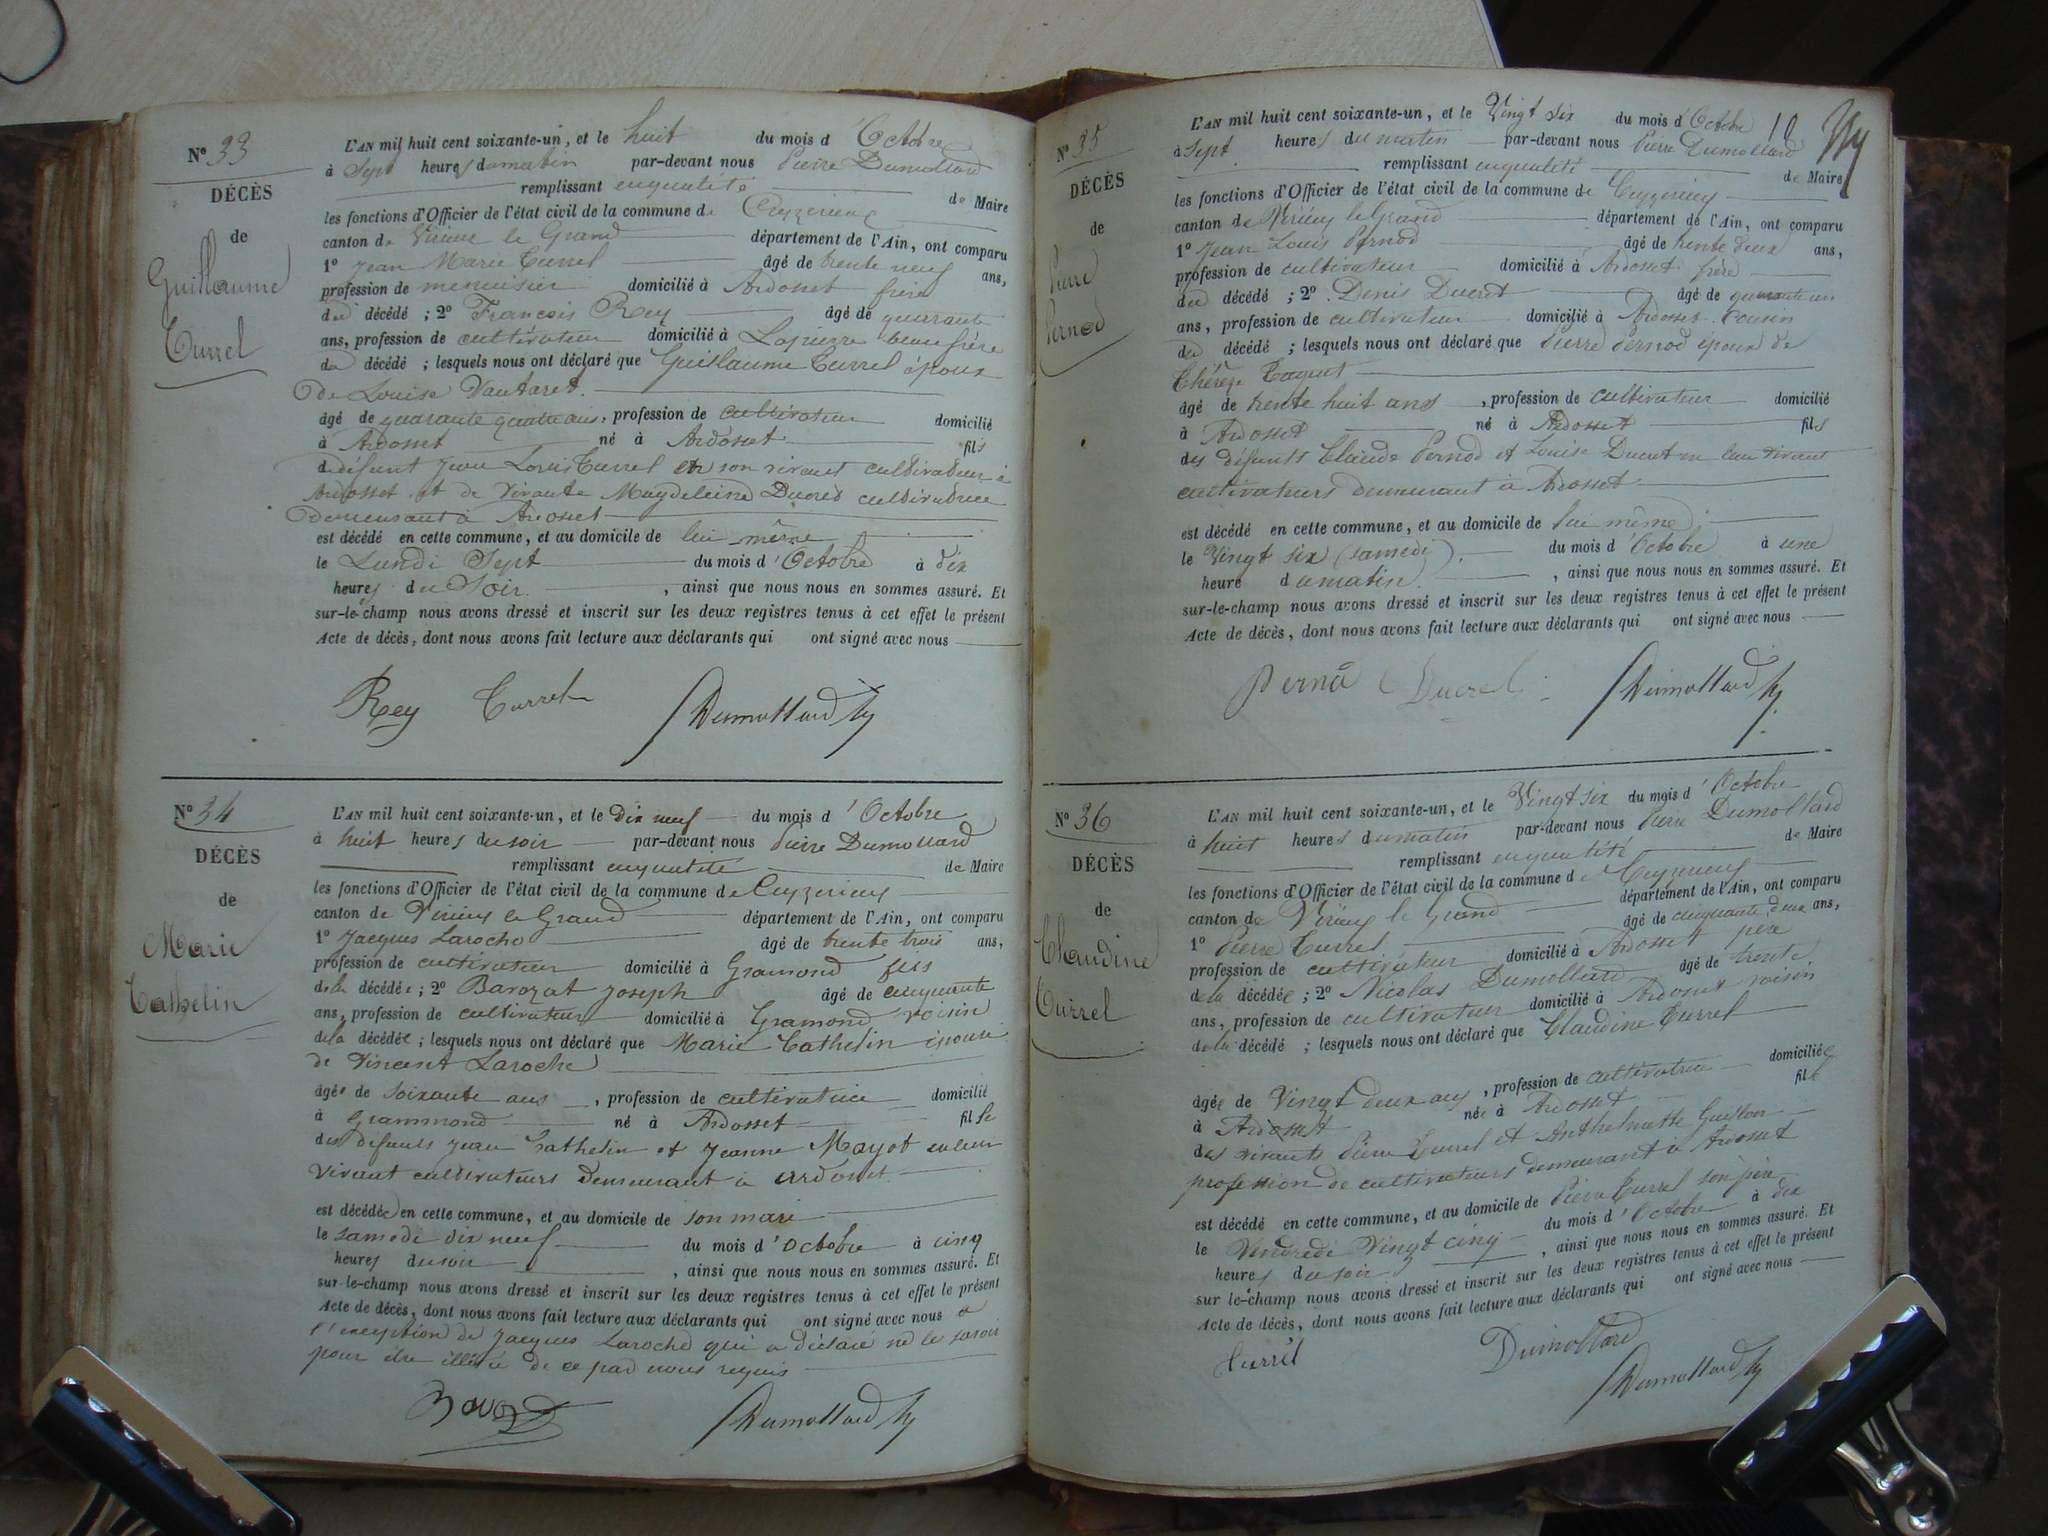 N° 33
DÉCÈS
de
Guillaume
Turrel
L'AN mil huit cent soixante-un, et le huit du mois d'Octobre
à Sept heures du matin par-devant nous Pierre Dumollard
remplissant en qualité de Maire
les fonctions d'Officier de l'état civil de la commune de Ceyzerieu
canton de Virieu le Grand département de l'Ain, ont comparu
1° Jean Marie Turrel âgé de trente neuf ans,
profession de menuisier domicilié à Ardosset frère
du décédé ; 2° François Rey âgé de quarante
ans, profession de cultivateur domicilié à Lapierre beau frère
du décédé ; lesquels nous ont déclaré que Guillaume Turrel époux
de Louise Vautaret
âgé de quarante quatre ans, profession de cultivateur domicilié
à Ardosset né à Ardosset fils
de défunt Jean Louis Turrel en son vivant cultivateur à
Ardosset et de vivante Magdeleine Ducret cultivatrice
demeurant à Ardosset
est décédé en cette commune, et au domicile de lui même
le Lundi Sept du mois d'Octobre à dix
heures du Soir, ainsi que nous nous en sommes assuré. Et
sur-le-champ nous avons dressé et inscrit sur les deux registres tenus à cet effet le présent
Acte de décès, dont nous avons fait lecture aux déclarants qui ont signé avec nous
Rey Turrel Dumollard
N° 34
DÉCÈS
de
Marie
Cathelin
L'AN mil huit cent soixante-un, et le dix neuf du mois d'Octobre
à huit heures du soir par-devant nous Pierre Dumollard
remplissant en qualité de Maire
les fonctions d'Officier de l'état civil de la commune de Ceyzerieu
canton de Virieu le Grand département de l'Ain, ont comparu
1° Jacques Laroche âgé de trente trois ans,
profession de cultivateur domicilié à Gramond fils
de la décédée ; 2° Barozat Joseph âgé de cinquante
ans, profession de cultivateur domicilié à Gramond voisin
de la décédée ; lesquels nous ont déclaré que Marie Cathelin épouse
de Vincent Laroche
âgée de soixante ans, profession de cultivatrice domicilié
à Grammond né à Ardosset fille
des défunts Jean Cathelin et Jeanne Mayot en leur
vivant cultivateurs demeurant à Ardosset
est décédée en cette commune, et au domicile de son mari
le samedi dix neuf du mois d'Octobre à cinq
heures du soir, ainsi que nous nous en sommes assuré. Et
sur-le-champ nous avons dressé et inscrit sur les deux registres tenus à cet effet le présent
Acte de décès, dont nous avons fait lecture aux déclarants qui ont signé avec nous à
l'exception de Jacques Laroche qui a déclaré ne le savoir
pour être illétré de ce par nous requis
Dumollard
10
N° 35
DÉCÈS
de
Pierre
Pernod
L'AN mil huit cent soixante-un, et le Vingt six du mois d'Octobre
à Sept heures du matin par-devant nous Pierre Dumollard
remplissant en qualité de Maire
les fonctions d'Officier de l'état civil de la commune de Ceyzerieu
canton de Virieu le Grand département de l'Ain, ont comparu
1° Jean Louis Pernod âgé de trente deux ans,
profession de cultivateur domicilié à Ardosset frère
du décédé ; 2° Denis Ducret âgé de quarante un
ans, profession de cultivateur domicilié à Ardosset cousin
du décédé ; lesquels nous ont déclaré que Pierre Pernod époux de
Thérèze Taquet
âgé de trente huit ans, profession de cultivateur domicilié
à Ardosset né à Ardosset fils
des défunts Claude Pernod et Louise Ducret en leur vivant
cultivateurs demeurant à Ardosset
est décédé en cette commune, et au domicile de lui même
le Vingt six (samedi) du mois d'Octobre à une
heure du matin, ainsi que nous nous en sommes assuré. Et
sur-le-champ nous avons dressé et inscrit sur les deux registres tenus à cet effet le présent
Acte de décès, dont nous avons fait lecture aux déclarants qui ont signé avec nous
Ducret Dumollard
N° 36
DÉCÈS
de
Claudine
Turrel
L'AN mil huit cent soixante-un, et le Vingt six du mois d'Octobre
à huit heures du matin par-devant nous Pierre Dumollard
remplissant en qualité de Maire
les fonctions d'Officier de l'état civil de la commune de Ceyzerieu
canton de Virieu le Grand département de l'Ain, ont comparu
1° Pierre Turrel âgé de cinquante deux ans,
profession de cultivateur domicilié à Ardosset père
de la décédée ; 2° Nicolas Dumollard âgé de trente
ans, profession de cultivateur domicilié à Ardosset voisin
de la décédé ; lesquels nous ont déclaré que Claudine Turrel
âgée de Vingt deux ans, profession de cultivatrice domiciliée
à Ardosset née à Ardosset fille
des vivants Pierre Turrel et Anthelmette
profession de cultivateurs demeurant à Ardosset
est décédé en cette commune, et au domicile de Pierre Turrel son père
le Vendredi Vingt cinq du mois d'Octobre à dix
heures du soir, ainsi que nous nous en sommes assuré. Et
sur-le-champ nous avons dressé et inscrit sur les deux registres tenus à cet effet le présent
Acte de décès, dont nous avons fait lecture aux déclarants qui ont signé avec nous
Turrel Dumollard
Dumollard